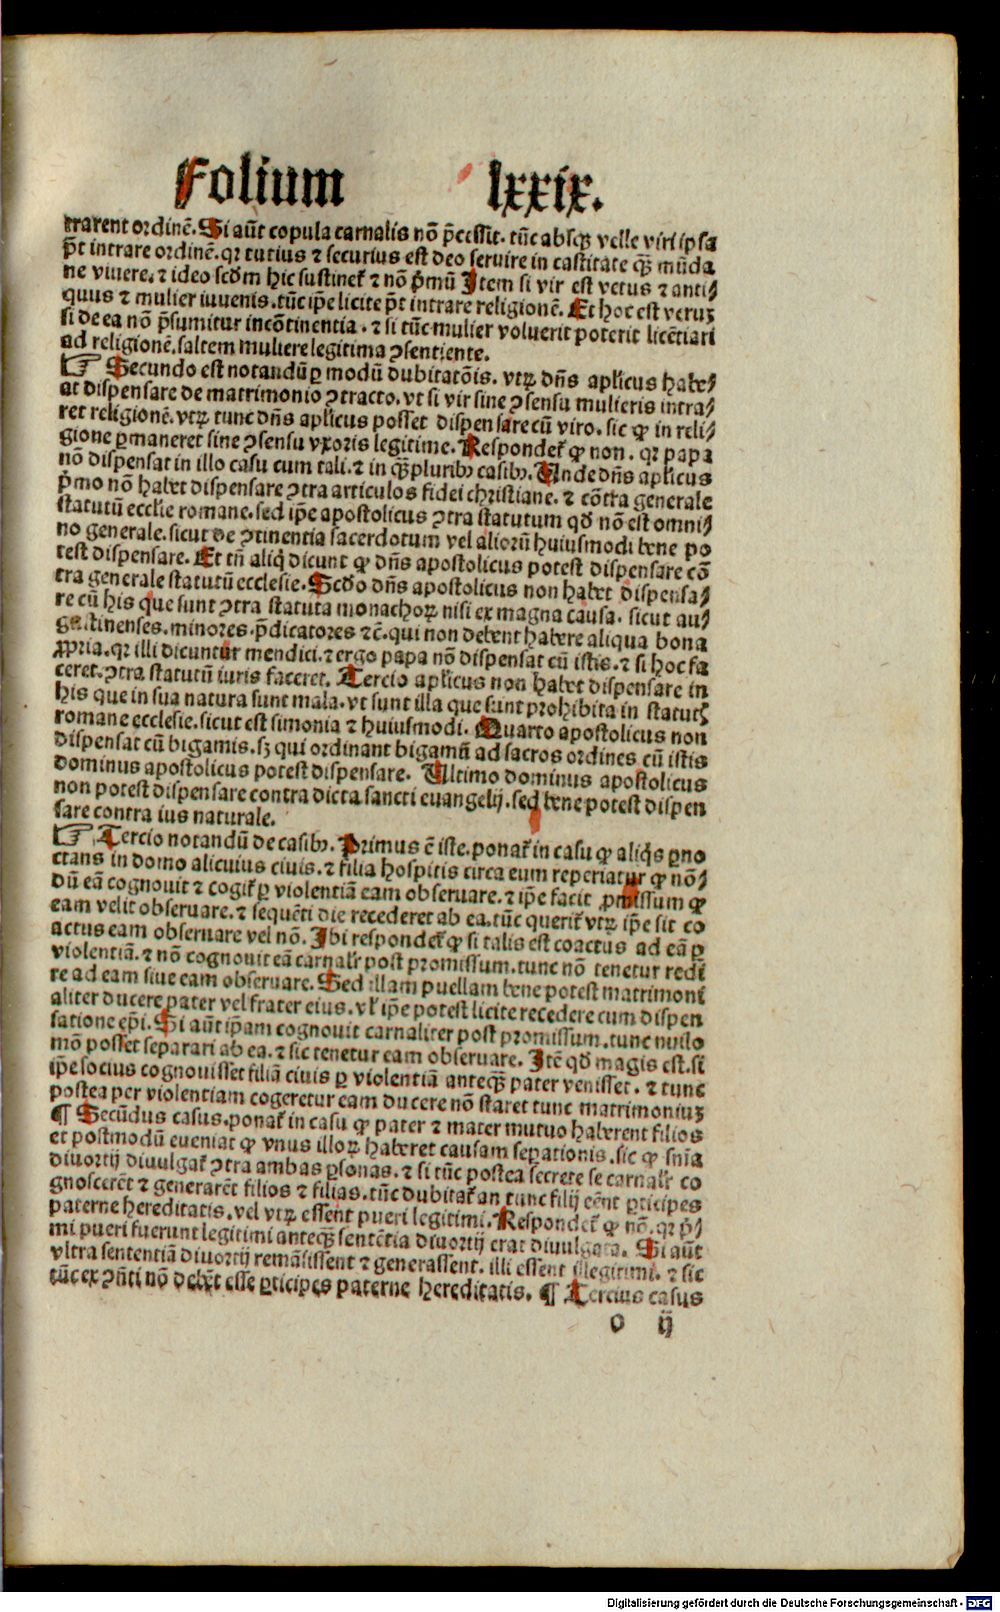 Folium lxxix.
trarent ordinē. Si aūt copula carnalis nō p̄cessit. tūc absqꝫ velle viri ipsa
p̄t intrare ordinē. qꝛ tutius ⁊ securius est deo seruire in castitate qꝫ̄ mūda
ne viuere. ⁊ ideo scd̄m hic sustinet̄ ⁊ nō p̄mū Item si vir est vetus ⁊ anti⸗
quus ⁊ mulier iuuenis. tūc ip̄e licite p̄t intrare religionē. Et hoc est veruꝫ
si de ea nō p̄sumitur incōtinentia. ⁊ si tūc mulier voluerit poterit licētiari
ad religionē. saltem muliere legitima ꝯsentiente.
☞ Secundo est notandū ꝑ modū dubitatōis. vtꝝ dn̄s aplicus habe⸗
at dispensare de matrimonio ꝯtracto. vt si vir sine ꝯsensu mulieris intra⸗
ret religionē. vtꝝ tunc dn̄s aplicus posset dispensare cū viro. sic ꝙ in reli⸗
gione ꝑmaneret sine ꝯsensu vxoris legitime. Respondet̄ ꝙ non. qꝛ papa
nō dispensat in illo casu cum tali. ⁊ in qꝫ̄pluribꝰ casibꝰ. Unde dn̄s aplicus
p̄mo nō habet dispensare ꝯtra articulos fidei christiane. ⁊ cōtra generale
statutū ecclie romane. sed ip̄e apostolicus ꝯtra statutum qd̄ nō est omni⸗
no generale. sicut de ꝯtinentia sacerdotum vel aliorū huiusmodi bene po
test dispensare. Et tn̄ aliqͥ dicunt ꝙ dn̄s apostolicus potest dispensare cō
tra generale statutū ecclesie. Scd̄o dn̄s apostolicus non habet dispensa⸗
re cū his que sunt ꝯtra statuta monachoꝝ nisi ex magna causa. sicut au⸗
gustinenses. minores. p̄dicatores ⁊c̄. qui non debent habere aliqua bona
ꝓpria. qꝛ illi dicuntur mendici. ⁊ ergo papa nō dispensat cū istis. ⁊ si hoc fa
ceret. ꝯtra statutū iuris faceret. Tercio aplicus non habet dispensare in
his que in sua natura sunt mala. vt sunt illa que sunt prohibita in statutꝭ
romane ecclesie. sicut est simonia ⁊ huiusmodi. Quarto apostolicus non
dispensat cū bigamis. sꝫ qui ordinant bigamū ad sacros ordines cū istis
dominus apostolicus potest dispensare. Ultimo dominus apostolicus
non potest dispensare contra dicta sancti euangelij. sed bene potest dispen
sare contra ius naturale.
☞ Tercio notandū de casibꝰ. Primus ē iste. ponat̄ in casu ꝙ aliqͥs ꝑno
ctans in domo alicuius ciuis. ⁊ filia hospitis circa eum reperiatur ꝙ nō⸗
dū eā cognouit ⁊ cogit̄ ꝑ violentiā eam obseruare. ⁊ ip̄e facit ꝓmissum ꝙ
eam velit obseruare. ⁊ sequēti die recederet ab ea. tūc querit̄ vtꝝ ip̄e sit co
actus eam obseruare vel nō. Ibi respondet̄ ꝙ si talis est coactus ad eā ꝑ
violentiā. ⁊ nō cognouit eā carnalr̄ post promissum. tunc nō tenetur redi
re ad eam siue eam obseruare. Sed illam puellam bene potest matrimoni
aliter ducere pater vel frater eius. vl̄ ip̄e potest licite recedere cum dispen
satione ep̄i. Si aūt ip̄am cognouit carnaliter post promissum. tunc nullo
mō posset separari ab ea. ⁊ sic tenetur eam obseruare. Itē qd̄ magis est. si
ip̄e socius cognouisset filiā ciuis ꝑ violentiā anteqꝫ̄ pater venisset. ⁊ tunc
postea per violentiam cogeretur eam ducere nō staret tunc matrimoniuꝫ
¶ Secūdus casus. ponat̄ in casu ꝙ pater ⁊ mater mutuo haberent filios
et postmodū eueniat ꝙ vnus illoꝝ haberet causam seꝑationis. sic ꝙ sn̄ia
diuortij diuulgat̄ ꝯtra ambas ꝑsonas. ⁊ si tūc postea secrete se carnalr̄ co
gnoscerēt ⁊ generarēt filios ⁊ filias. tūc dubitat̄ an tunc filij eēnt ꝑticipes
paterne hereditatis. vel vtꝝ essent pueri legitimi. Respondet̄ ꝙ nō. qꝛ p̄⸗
mi pueri fuerunt legitimi anteqꝫ̄ sentētia diuortij erat diuulgata. Si aūt
vltra sententiā diuortij remāsissent ⁊ generassent. illi essent illegitimi. ⁊ sic
tūc ex ꝯn̄ti nō debēt esse ꝑticipes paterne hereditatis. ¶ Tercius casus
o ij
Digitalisierung gefördert durch die Deutsche Forschungsgemeinschaft - DFG